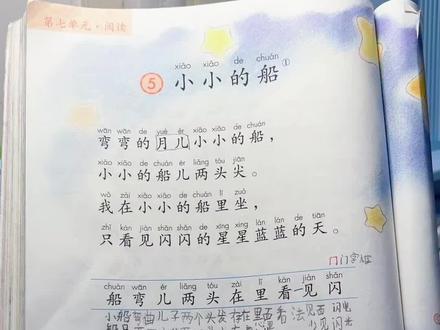 第七单元·阅读
xiǎo xiǎo de chuán
5 小小的船①
wān wān de yuè ér xiǎo xiǎo de chuán
弯弯的月儿小小的船，
xiǎo xiǎo de chuán ér liǎng tóu jiān
小小的船儿两头尖。
wǒ zài xiǎo xiǎo de chuán lǐ zuò
我在小小的船里坐，
zhǐ kàn jiàn shǎn shǎn de xīng xing lán lán de tiān
只看见闪闪的星星蓝蓝的天。
门门字框
chuán wān ér liǎng tóu zài lǐ kàn jiàn shǎn
船弯儿两头在里看见闪
小船弯曲儿子两个头尖存在里面看法见面闪电